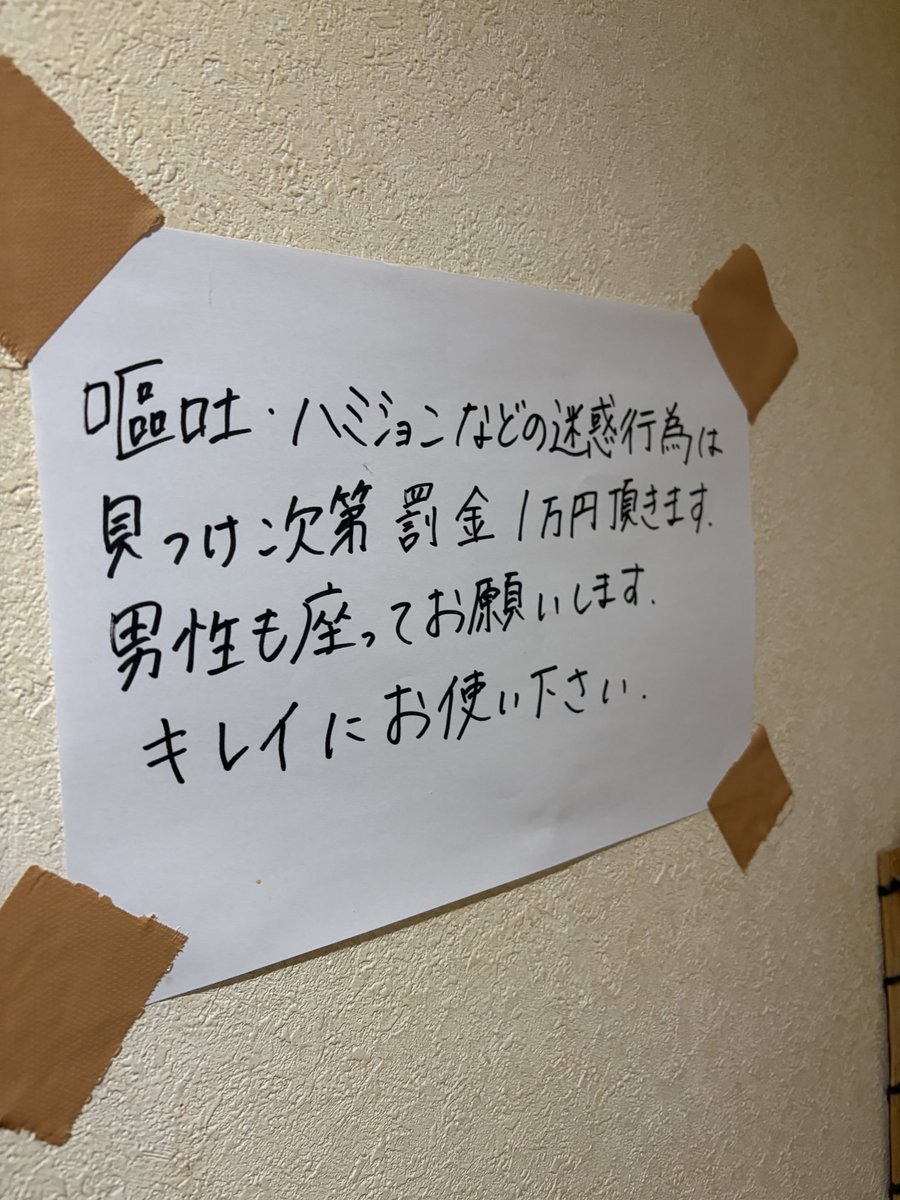 嘔吐・ハミションなどの迷惑行為は
見つけ次第 罰金1万円頂きます.
男性も座ってお願いします.
キレイにお使い下さい.